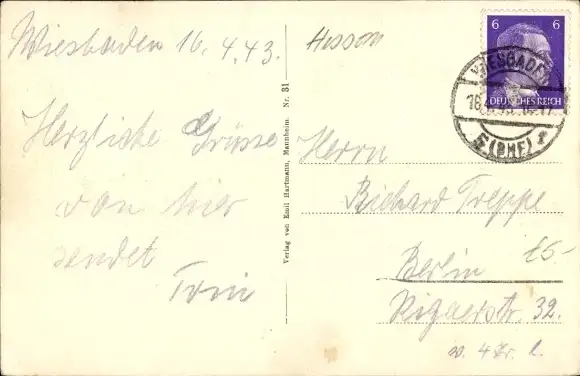 Wiesbaden 16.4.43.
Herzliche Grüsse
von hier
sendet
Toni
Verlag von Emil Hartmann, Mannheim. Nr. 31
Hessen
6 6
DEUTSCHES REICH
WIESBADEN
Herrn
Richard Treppe
Berlin
15-
Rigaerstr. 32.
v. 4 Tr. l.